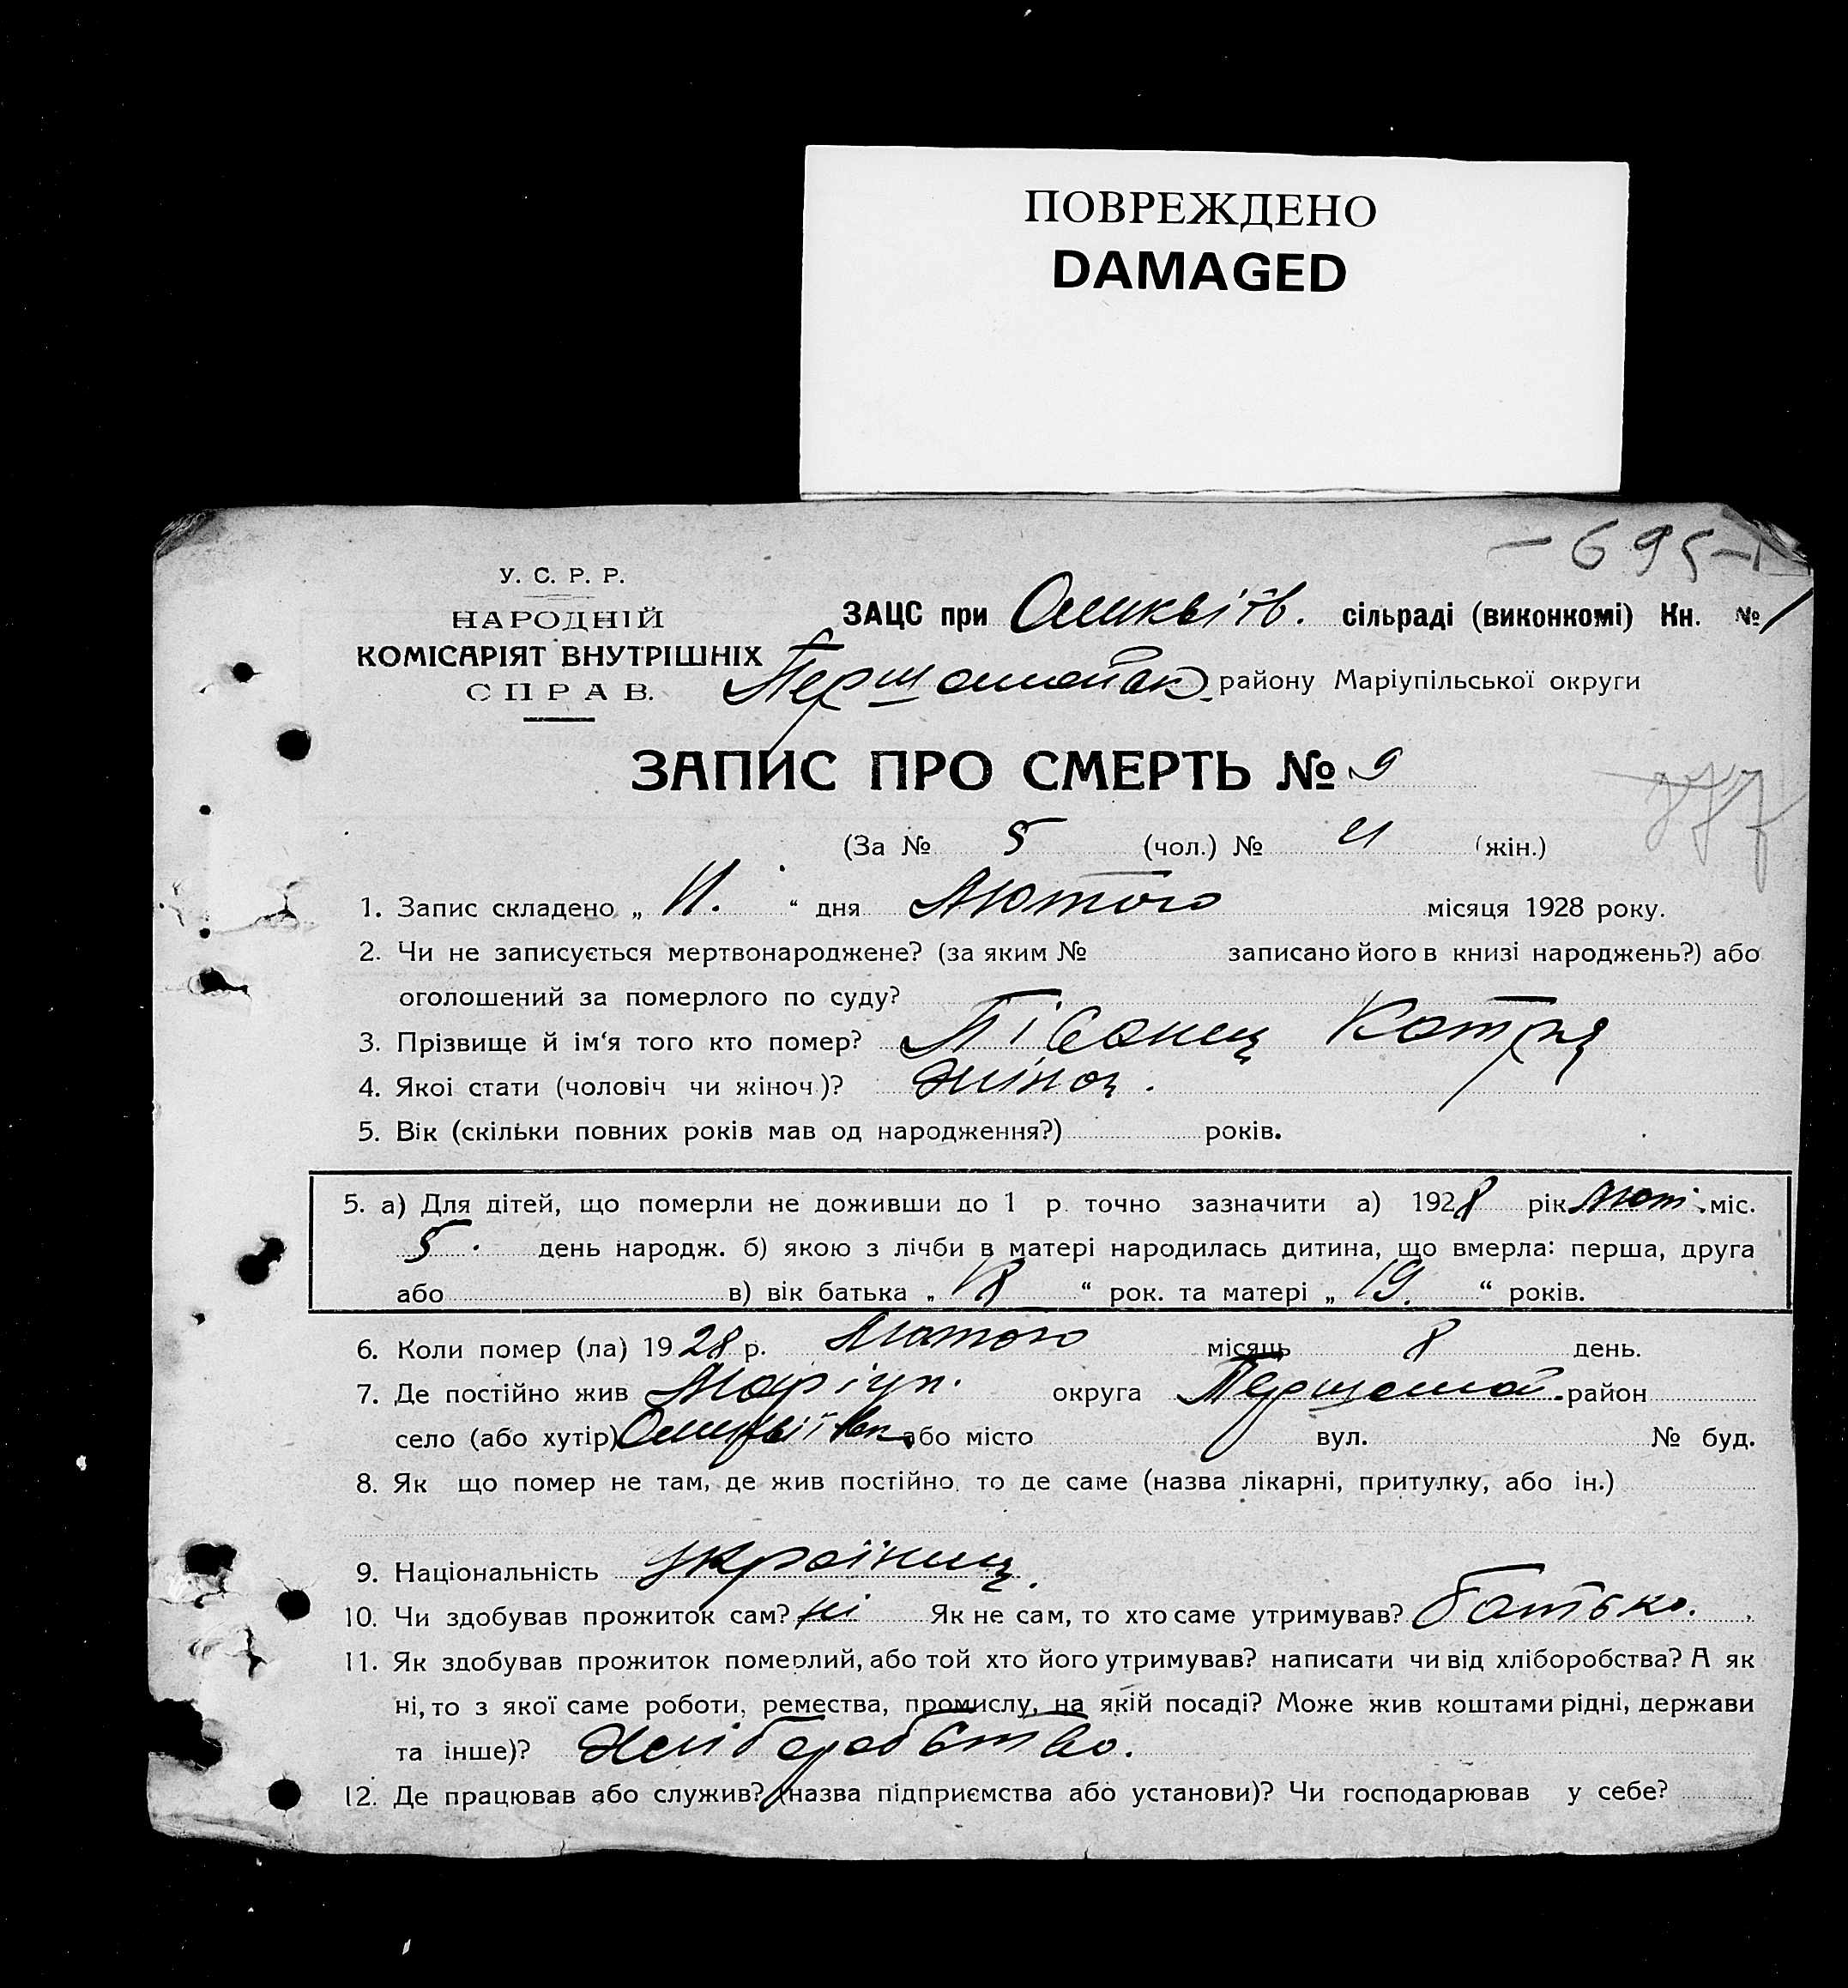 ПОВРЕЖДЕНО
DAMAGED
— 695 —
У. С. Р. Р.
НАРОДНІЙ
КОМІСАРІЯТ ВНУТРІШНІХ
СПРАВ.
ЗАЦС при сільраді (виконкомі) Кн. № 1
Першомайськ. району Маріупільської округи
ЗАПИС ПРО СМЕРТЬ № 9
(За № 5 (чол.) № 4 (жін.)
1. Запис складено „ 11. “ дня Лютого місяця 1928 року.
2. Чи не записується мертвонароджене? (за яким № записано його в книзі народжень?) або
оголошений за померлого по суду?
3. Прізвище й ім‘я того кто помер? Півонец Катря
4. Якоі стати (чоловіч чи жіноч.)? жіноч.
5. Вік (скільки повних років мав од народження?) років.
5. а) Для дітей, що померли не доживши до 1 р. точно зазначити а) 1928 рік лют. міс.
5. день народж. б) якою з лічби в матері народилась дитина, що вмерла: перша, друга
або в) вік батька „ 18 “ рок. та матері „ 19. “ років.
6. Коли помер (ла) 1928 р. Лютого місяць 8 день.
7. Де постійно жив Маріуп. округа Першомай. район
село (або хутір) або місто вул. № буд.
8. Як що помер не там, де жив постійно, то де саме (назва лікарні, притулку, або ін.)
9. Національність Українец.
10. Чи здобував прожиток сам? ні Як не сам, то хто саме утримував? батько.
11. Як здобував прожиток померлий, або той хто його утримував? написати чи від хліборобства? А як
ні, то з якої саме роботи, ремества, промислу, на якій посаді? Може жив коштами рідні, держави
та інше)? Хліборобство.
12. Де працював або служив? (назва підприємства або установи)? Чи господарював у себе?